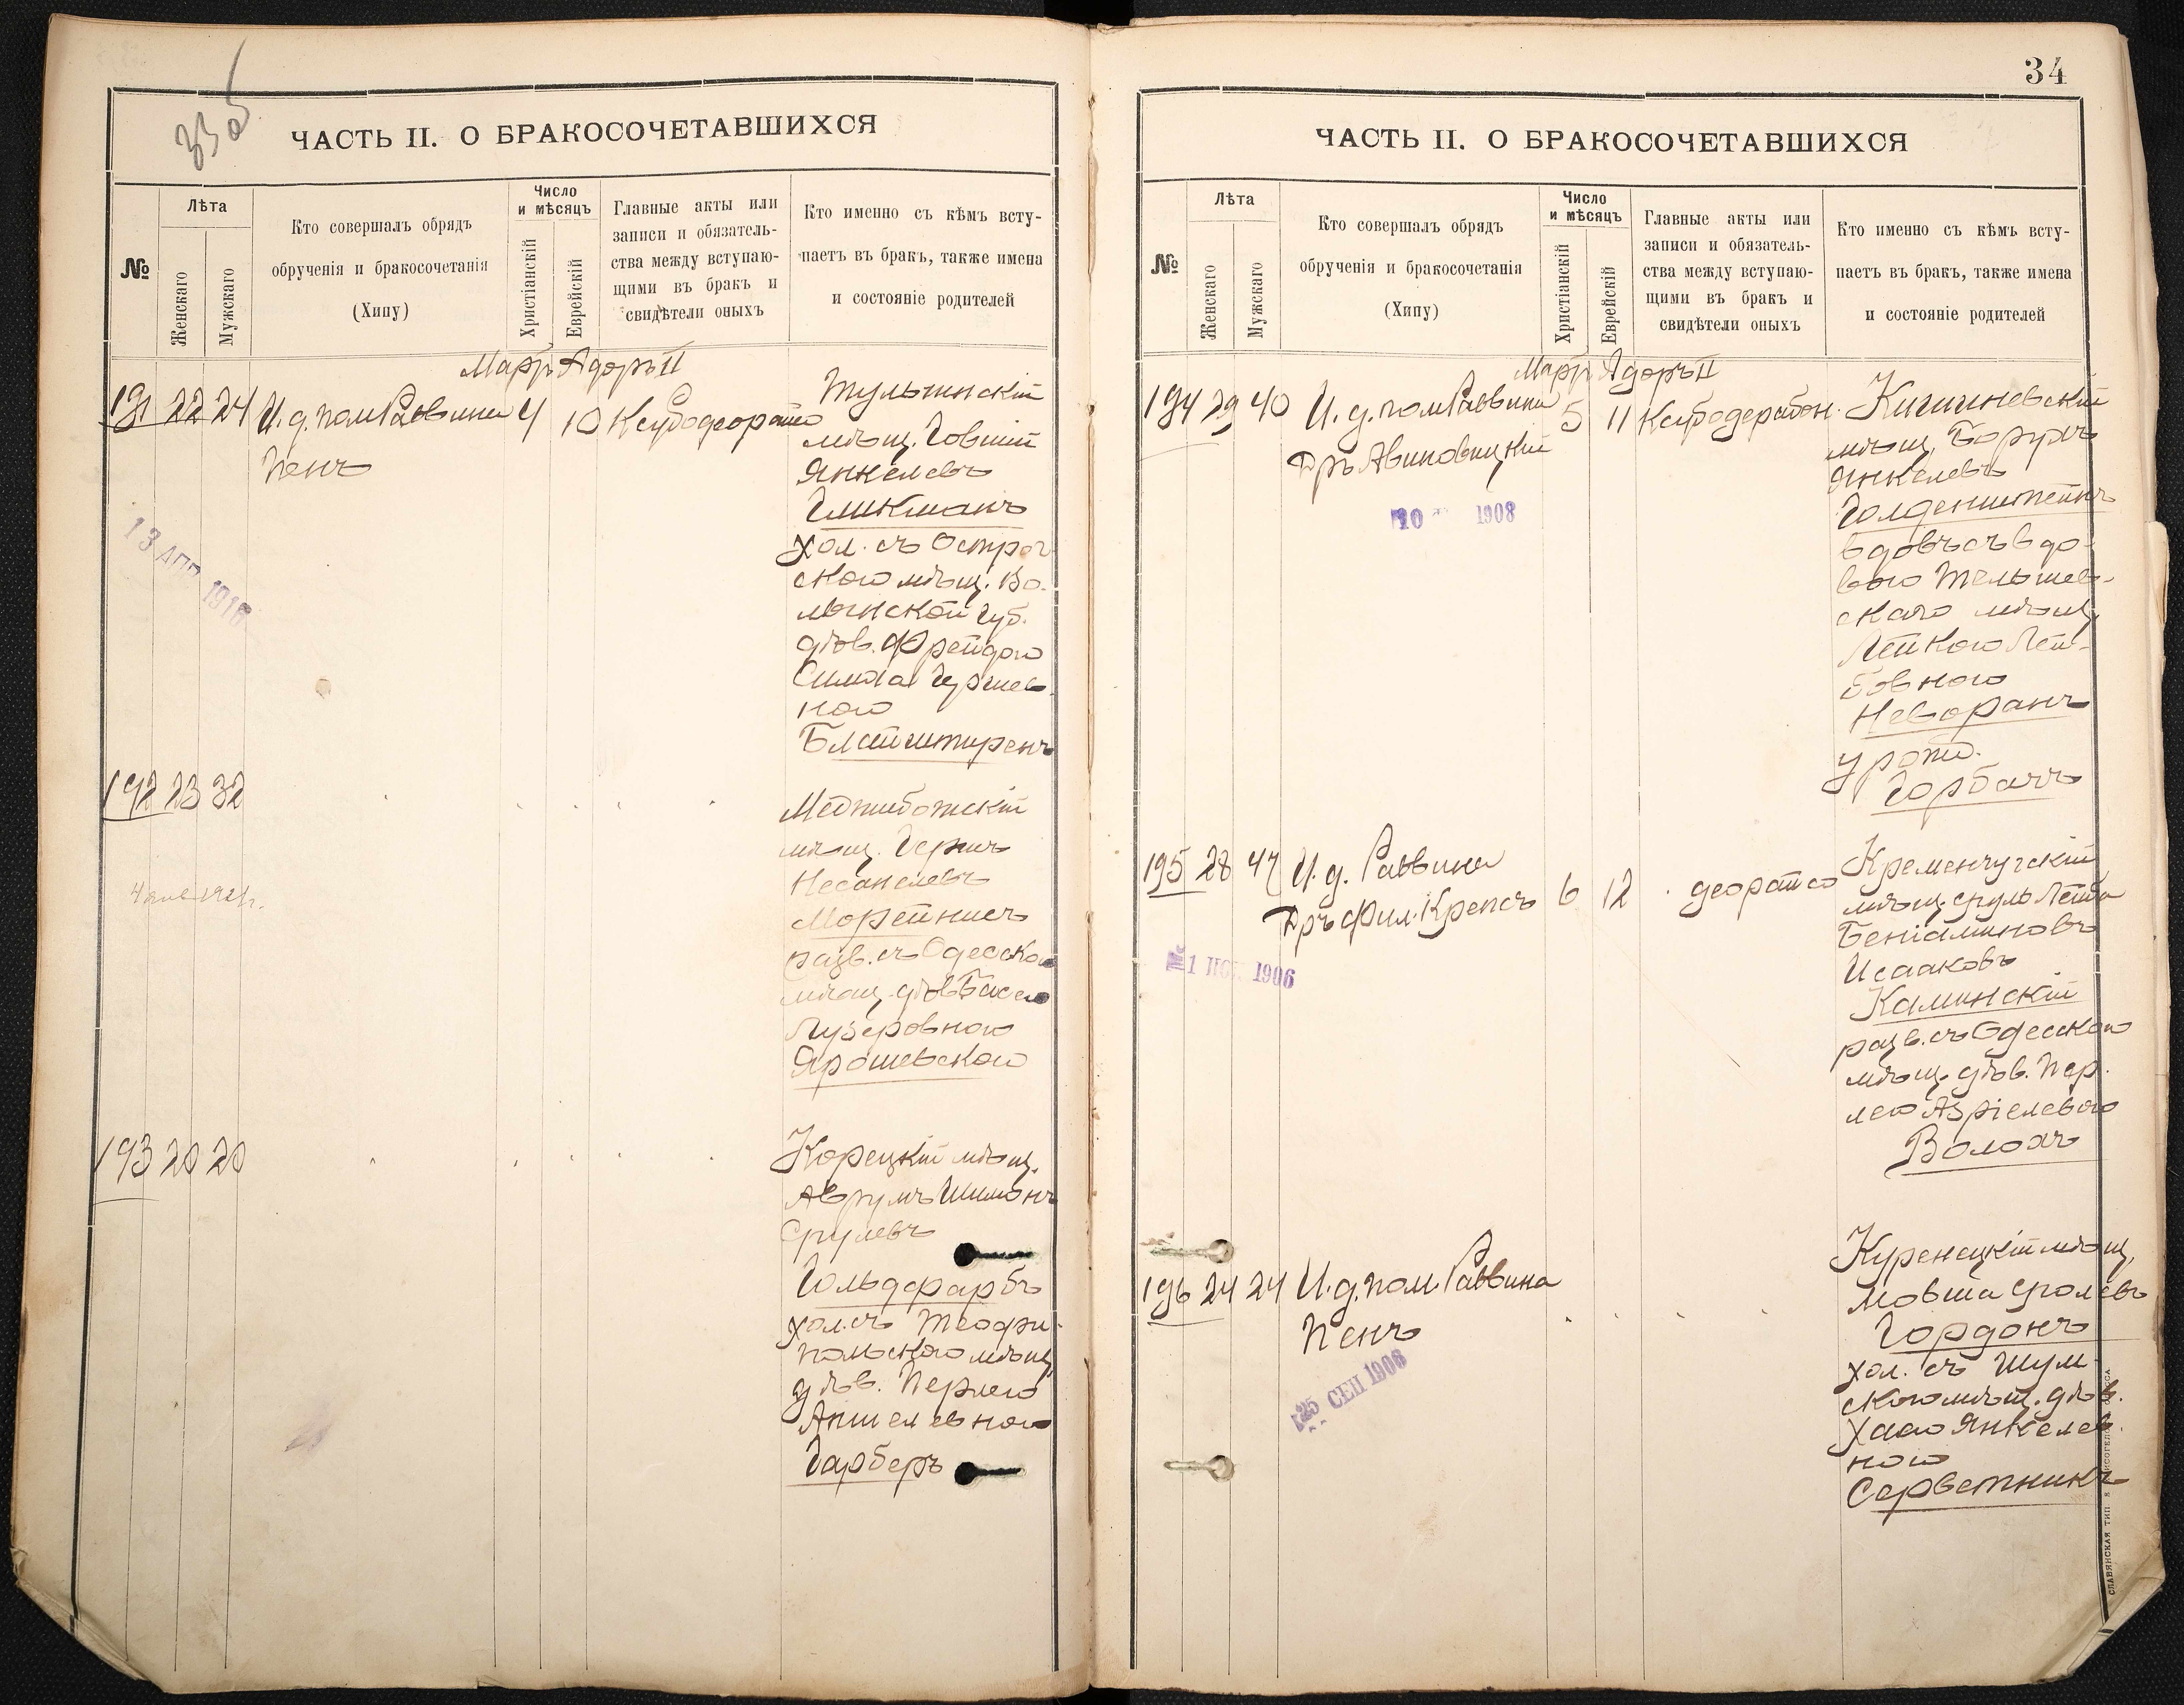 33об
ЧАСТЬ II. О БРАКОСОЧЕТАВШИХСЯ
№
Лѣта
Женскаго
Мужскаго
Кто совершалъ обрядъ
обрученія и бракосочетанія
(Хипу)
Число
и мѣсяцъ
Христіанскій
Еврейскій
Главные акты или
записи и обязатель-
ства между вступаю-
щими въ бракъ и
свидѣтели оныхъ
Кто именно съ кѣмъ всту-
паетъ въ бракъ, также имена
и состояніе родителей
Мартъ Адоръ II
191 22 24 И. д. пом Раввина 4 10
Пенъ
Тульчинскій
мѣщ. Говшій
Янкелевъ
Гликманъ
хол. съ Острог-
скою мѣщ. Во-
лынской губ.
дѣв. Фрейдою
Симой Гершев-
ною
Блайштиренъ
13 АПР 1916
192 23 32
Меджибожскій
мѣщ. Гершъ
Несанелевъ
Морейнисъ
разв. съ Одесскою
мѣщ. дѣв Басею
Лузеровною
Ярошевскою
193 20 20
Корецкій мѣщ.
Аврумъ Шимонъ
Срулевъ
Гольдфарбъ
хол. съ Теофи-
польскою мѣщ.
дѣв. Перлею
Аншелевною
Гарберъ
34
ЧАСТЬ II. О БРАКОСОЧЕТАВШИХСЯ
№
Лѣта
Женскаго
Мужскаго
Кто совершалъ обрядъ
обрученія и бракосочетанія
(Хипу)
Число
и мѣсяцъ
Христіанскій
Еврейскій
Главные акты или
записи и обязатель-
ства между вступаю-
щими въ бракъ и
свидѣтели оныхъ
Кто именно съ кѣмъ всту-
паетъ въ бракъ, также имена
и состояніе родителей
Мартъ Адоръ II
194 29 40 И. д. пом Раввина 5 11
Дръ Авиновицкій
10 1908
Кишиневскій
мѣщ. Борухъ
Янкелевъ
Голденштейнъ
вдовъ съ вдо-
вою Тельшев-
скаго мѣщ.
Лейкою Лей-
бовною
Неворанъ
урожд.
Горбачъ
195 28 47 И. д. Раввина 6 12
Дръ Фил. Крепсъ
1 НОЯ 1906
Кременчугскій
мѣщ. Сруль Лейба
Беніаминовъ
Исааковъ
Каминскій
разв. съ Одесскою
мѣщ. дѣв. Пер-
лею Азріелевою
Волохъ
196 24 24 И. д. пом Раввина
Пенъ
25 СЕП 1908
Куренецкій мѣщ.
Мовша Сролевъ
Гордонъ
хол. съ Шум-
скою мѣщ. дѣв.
Хаею Янкелев-
ною
Серветникъ
СЛАВЯНСКАЯ ТИП.